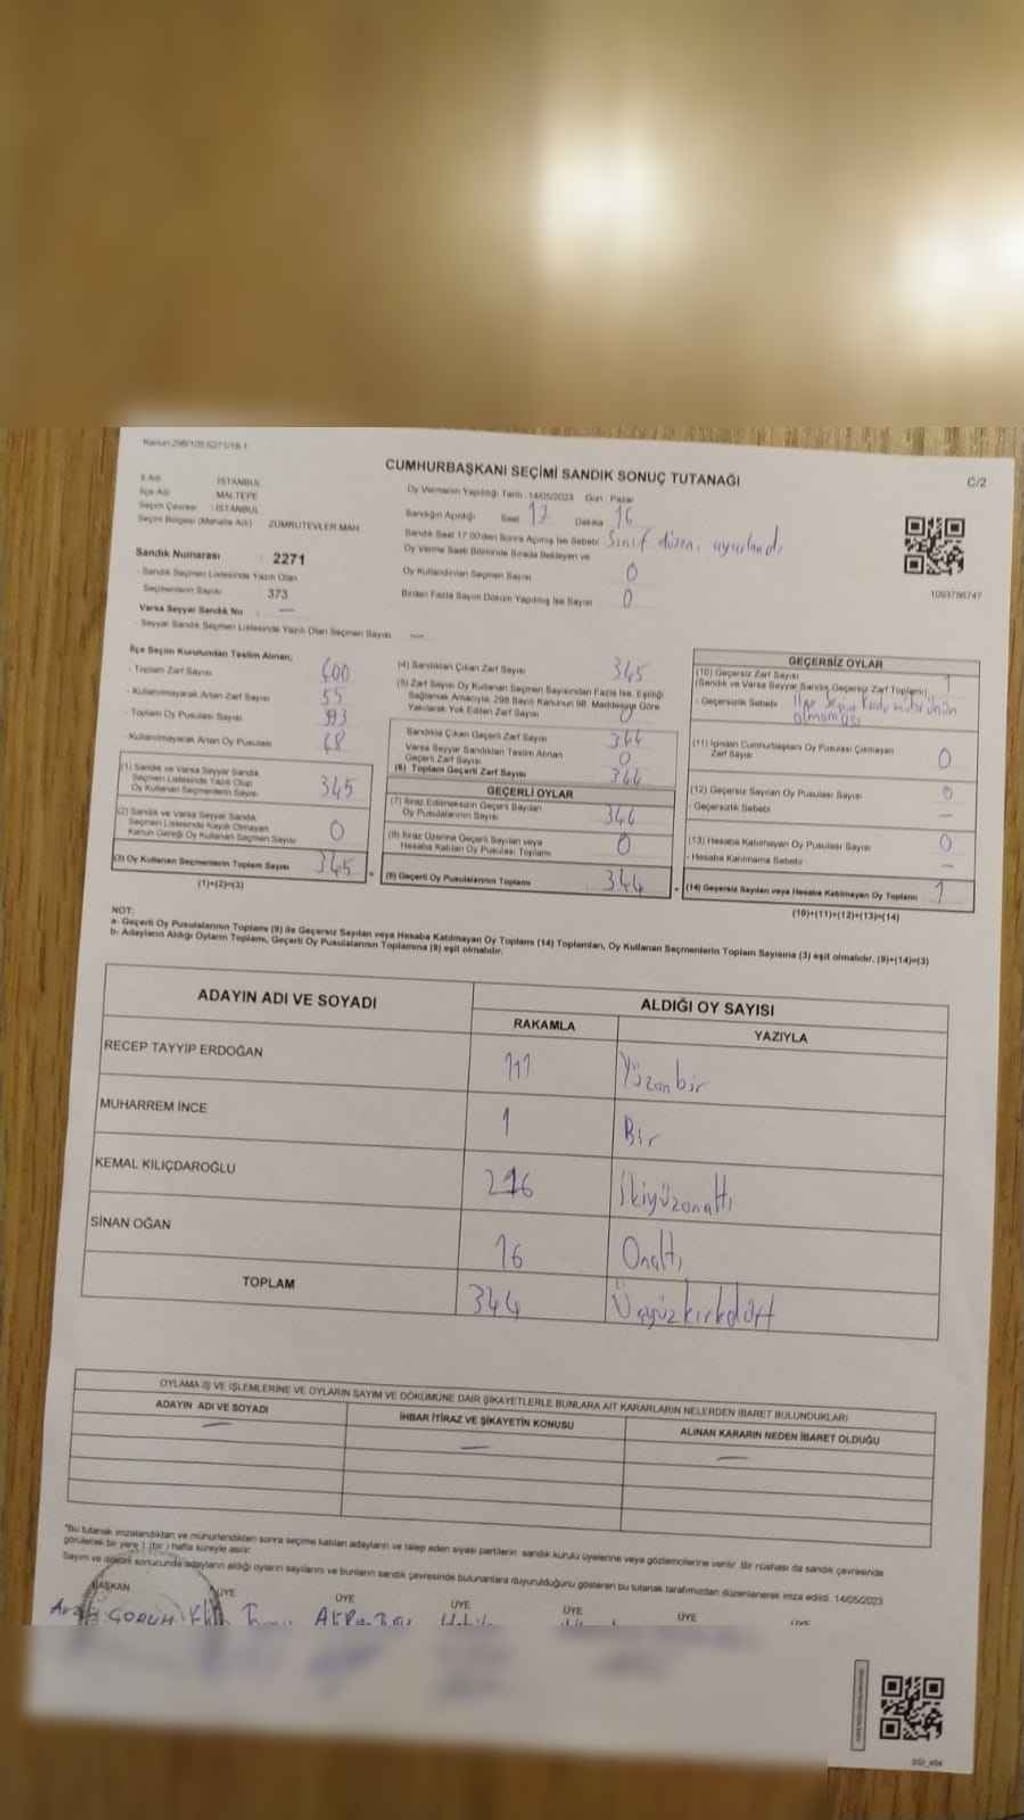 CUMHURBAŞKANI SEÇİMİ SANDIK SONUÇ TUTANAĞI
C/2
İli Adı : İSTANBUL
İlçe Adı : MALTEPE
Seçim Çevresi : İSTANBUL
Seçim Bölgesi (Mahalle Adı) : ZÜMRÜTEVLER MAH.
Oy Vermenin Yapıldığı Tarih : 14/05/2023 Gün : Pazar
Sandığın Açıldığı Saat 17 Dakika 16
Sandık Saat 17.00'den Sonra Açılmış İse Sebebi: Sınıf düzen. ayarlandı
Oy Verme Saati Bitiminde Sırada Bekleyen ve
Oy Kullandırılan Seçmen Sayısı 0
Birden Fazla Sayım Döküm Yapılmış İse Sayısı 0
Sandık Numarası : 2271
- Sandık Seçmen Listesinde Yazılı Olan
Seçmenlerin Sayısı : 373
Varsa Seyyar Sandık No : —
- Seyyar Sandık Seçmen Listesinde Yazılı Olan Seçmen Sayısı : —
İlçe Seçim Kurulundan Teslim Alınan;
- Toplam Zarf Sayısı 400
- Kullanılmayarak Artan Zarf Sayısı 55
- Toplam Oy Pusulası Sayısı 393
- Kullanılmayarak Artan Oy Pusulası 48
(1) Sandık ve Varsa Seyyar Sandık
Seçmen Listesinde Yazılı Olup
Oy Kullanan Seçmenlerin Sayısı 345
(2) Sandık ve Varsa Seyyar Sandık
Seçmen Listesinde Kayıtlı Olmayan
Kanun Gereği Oy Kullanan Seçmen Sayısı 0
(3) Oy Kullanan Seçmenlerin Toplam Sayısı 345
(1)+(2)=(3)
(4) Sandıktan Çıkan Zarf Sayısı 345
(5) Zarf Sayısı Oy Kullanan Seçmen Sayısından Fazla İse, Eşitliği
Sağlamak Amacıyla, 298 Sayılı Kanunun 98. Maddesine Göre
Yakılarak Yok Edilen Zarf Sayısı 0
Sandıkta Çıkan Geçerli Zarf Sayısı 344
Varsa Seyyar Sandıktan Teslim Alınan
Geçerli Zarf Sayısı 0
(6) Toplam Geçerli Zarf Sayısı 344
GEÇERLİ OYLAR
(7) İtiraz Edilmeksizin Geçerli Sayılan
Oy Pusulalarının Sayısı 344
(8) İtiraz Üzerine Geçerli Sayılan veya
Hesaba Katılan Oy Pusulası Toplamı 0
(9) Geçerli Oy Pusulalarının Toplamı 344
GEÇERSİZ OYLAR
(10) Geçersiz Zarf Sayısı
(Sandık ve Varsa Seyyar Sandık Geçersiz Zarf Toplamı) 1
- Geçersizlik Sebebi : İlçe Seçim Kurulu mührünün
olmaması
(11) İçinden Cumhurbaşkanı Oy Pusulası Çıkmayan
Zarf Sayısı 0
(12) Geçersiz Sayılan Oy Pusulası Sayısı 0
- Geçersizlik Sebebi : —
(13) Hesaba Katılmayan Oy Pusulası Sayısı 0
- Hesaba Katılmama Sebebi : —
(14) Geçersiz Sayılan veya Hesaba Katılmayan Oy Toplamı 1
(10)+(11)+(12)+(13)=(14)
NOT:
a- Geçerli Oy Pusulalarının Toplamı (9) ile Geçersiz Sayılan veya Hesaba Katılmayan Oy Toplamı (14) Toplamları, Oy Kullanan Seçmenlerin Toplam Sayısına (3) eşit olmalıdır. (9)+(14)=(3)
b- Adayların Aldığı Oyların Toplamı, Geçerli Oy Pusulalarının Toplamına (9) eşit olmalıdır.
ADAYIN ADI VE SOYADI
ALDIĞI OY SAYISI
RAKAMLA YAZIYLA
RECEP TAYYİP ERDOĞAN 111 Yüzonbir
MUHARREM İNCE 1 Bir
KEMAL KILIÇDAROĞLU 216 İkiyüzonaltı
SİNAN OĞAN 16 Onaltı
TOPLAM 344 Üçyüzkırkdört
OYLAMA İŞ VE İŞLEMLERİNE VE OYLARIN SAYIM VE DÖKÜMÜNE DAİR ŞİKAYETLERLE BUNLARA AİT KARARLARIN NELERDEN İBARET BULUNDUKLARI
ADAYIN ADI VE SOYADI İHBAR İTİRAZ VE ŞİKAYETİN KONUSU ALINAN KARARIN NEDEN İBARET OLDUĞU
— — —
"Bu tutanak imzalandıktan ve mühürlendikten sonra seçime katılan adayların ve talep eden siyasi partilerin sandık kurulu üyelerine veya gözlemcilerine verilir. Bir nüshası da sandık çevresinde
görülecek bir yere 1 (bir) hafta süreyle asılır.
Sayım ve döküm sonucunda adayların aldığı oyların sayılarını ve bunların sandık çevresinde bulunanlara duyurulduğunu gösteren bu tutanak tarafımızdan düzenlenerek imza edildi. 14/05/2023
BAŞKAN ÜYE ÜYE ÜYE ÜYE ÜYE ÜYE